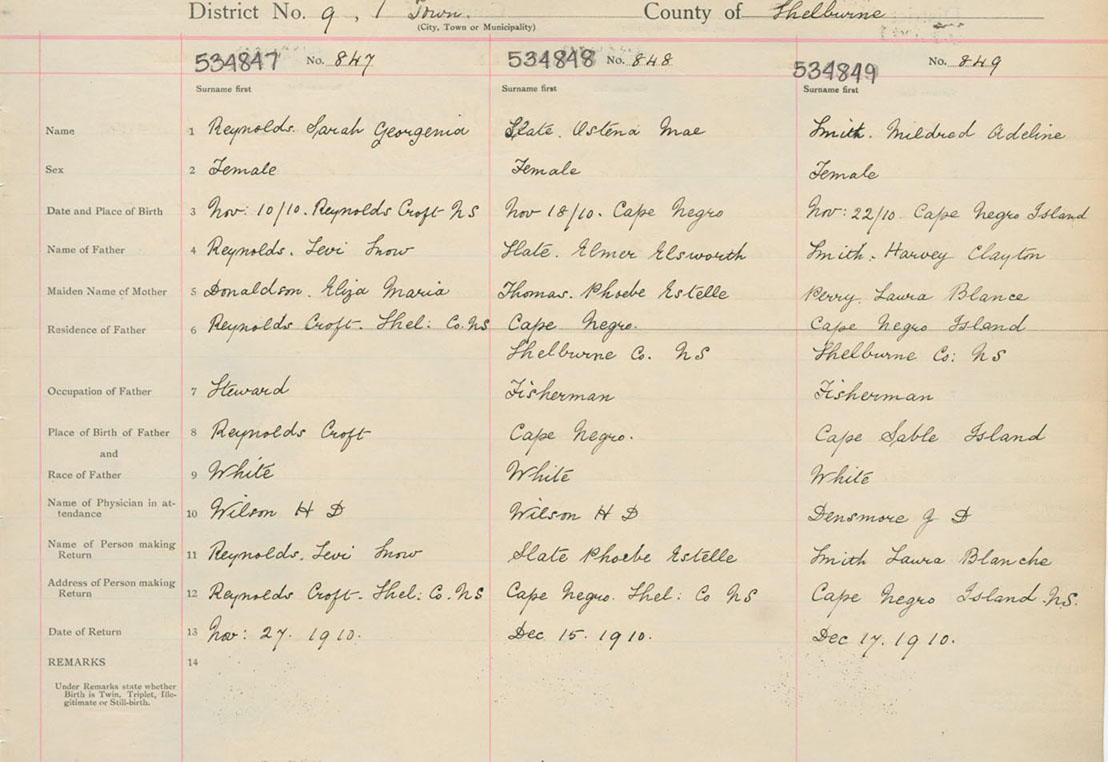 District No. 9, 1 Town. County of Shelburne
(City, Town or Municipality)
534847 No. 847 534848 No. 848 534849 No. 849
Surname first Surname first Surname first
Name 1 Reynolds. Sarah Georgenia Slate. Ostena Mae Smith. Mildred Adeline
Sex 2 Female Female Female
Date and Place of Birth 3 Nov: 10/10. Reynolds Croft NS Nov 18/10. Cape Negro Nov: 22/10. Cape Negro Island
Name of Father 4 Reynolds. Levi Snow Slate. Elmer Elsworth Smith. Harvey Clayton
Maiden Name of Mother 5 Donaldson. Eliza Maria Thomas. Phoebe Estelle Perry. Laura Blance
Residence of Father 6 Reynolds Croft. Shel: Co. NS Cape Negro. Cape Negro Island
Shelburne Co. NS Shelburne Co: NS
Occupation of Father 7 Steward Fisherman Fisherman
Place of Birth of Father 8 Reynolds Croft Cape Negro. Cape Sable Island
and
Race of Father 9 White White White
Name of Physician in at-
tendance 10 Wilson H D Wilson H D Densmore J D
Name of Person making
Return 11 Reynolds. Levi Snow Slate Phoebe Estelle Smith Laura Blanche
Address of Person making
Return 12 Reynolds Croft. Shel: Co. NS Cape Negro. Shel: Co NS Cape Negro Island. NS.
Date of Return 13 Nov: 27. 1910. Dec 15. 1910. Dec 17. 1910.
REMARKS 14
Under Remarks state whether
Birth is Twin, Triplet, Ille-
gitimate or Still-birth.